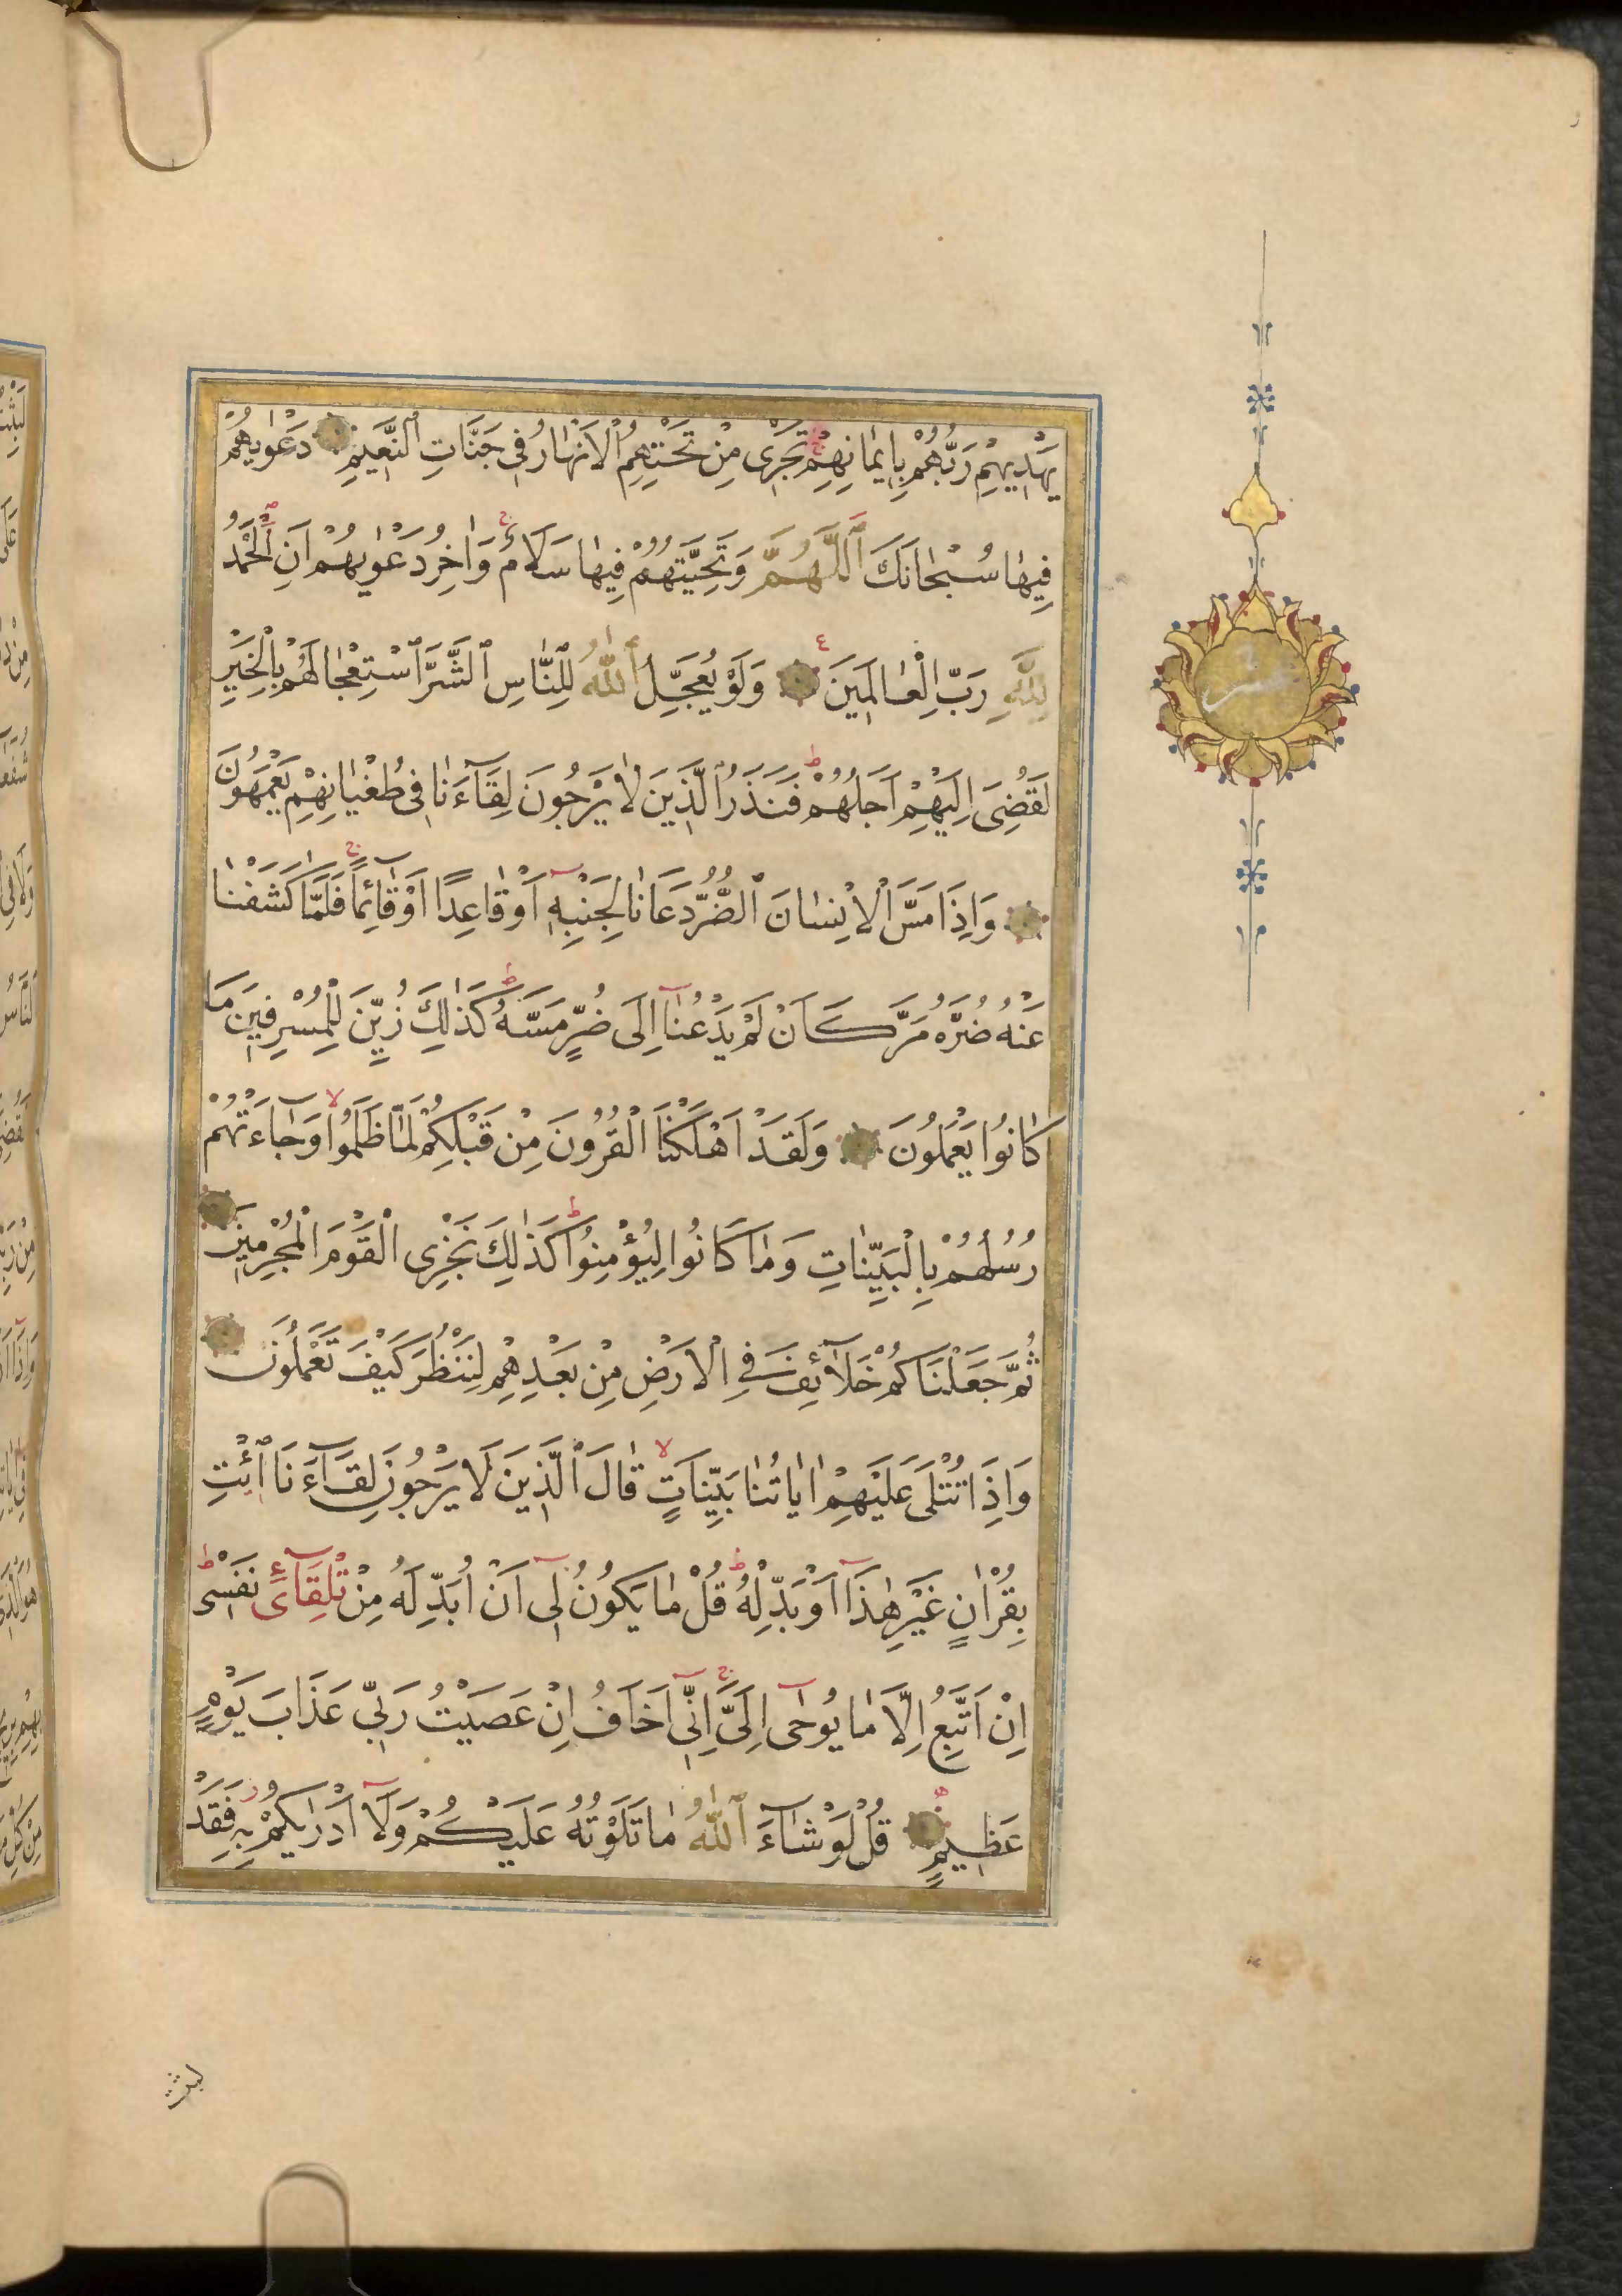 يَهْدِيهِمْ رَبُّهُمْ بِاِيمَانِهِمْ تَجْرِى مِنْ تَحْتِهِمُ الْاَنْهَارُ فِى جَنَّاتِ النَّعِيمِ دَعْوٰيهُمْ
فِيهَا سُبْحَانَكَ اللّٰهُمَّ وَتَحِيَّتُهُمْ فِيهَا سَلَامٌ وَاٰخِرُ دَعْوٰيهُمْ اَنِ الْحَمْدُ
لِلّٰهِ رَبِّ الْعَالَمِينَ وَلَوْ يُعَجِّلُ اللّٰهُ لِلنَّاسِ الشَّرَّ اسْتِعْجَالَهُمْ بِالْخَيْرِ
لَقُضِىَ اِلَيْهِمْ اَجَلُهُمْ فَنَذَرُ الَّذِينَ لَا يَرْجُونَ لِقَآءَنَا فِى طُغْيَانِهِمْ يَعْمَهُونَ
وَاِذَا مَسَّ الْاِنْسَانَ الضُّرُّ دَعَانَا لِجَنْبِهِ اَوْ قَاعِدًا اَوْ قَآئِمًا فَلَمَّا كَشَفْنَا
عَنْهُ ضُرَّهُ مَرَّ كَاَنْ لَمْ يَدْعُنَآ اِلَى ضُرٍّ مَسَّهُ كَذٰلِكَ زُيِّنَ لِلْمُسْرِفِينَ مَا
كَانُوا يَعْمَلُونَ وَلَقَدْ اَهْلَكْنَا الْقُرُونَ مِنْ قَبْلِكُمْ لَمَّا ظَلَمُوا وَجَآءَتْهُمْ
رُسُلُهُمْ بِالْبَيِّنَاتِ وَمَا كَانُوا لِيُؤْمِنُوا كَذٰلِكَ نَجْزِى الْقَوْمَ الْمُجْرِمِينَ
ثُمَّ جَعَلْنَاكُمْ خَلَآئِفَ فِى الْاَرْضِ مِنْ بَعْدِهِمْ لِنَنْظُرَ كَيْفَ تَعْمَلُونَ
وَاِذَا تُتْلَى عَلَيْهِمْ اٰيَاتُنَا بَيِّنَاتٍ قَالَ الَّذِينَ لَا يَرْجُونَ لِقَآءَنَا ائْتِ
بِقُرْاٰنٍ غَيْرِ هٰذَآ اَوْ بَدِّلْهُ قُلْ مَا يَكُونُ لِىٓ اَنْ اُبَدِّلَهُ مِنْ تِلْقَآءِ نَفْسِى
اِنْ اَتَّبِعُ اِلَّا مَا يُوحَىٓ اِلَىَّ اِنِّىٓ اَخَافُ اِنْ عَصَيْتُ رَبِّى عَذَابَ يَوْمٍ
عَظِيمٍ قُلْ لَوْ شَآءَ اللّٰهُ مَا تَلَوْتُهُ عَلَيْكُمْ وَلَآ اَدْرٰيكُمْ بِهِ فَقَدْ
لبثت